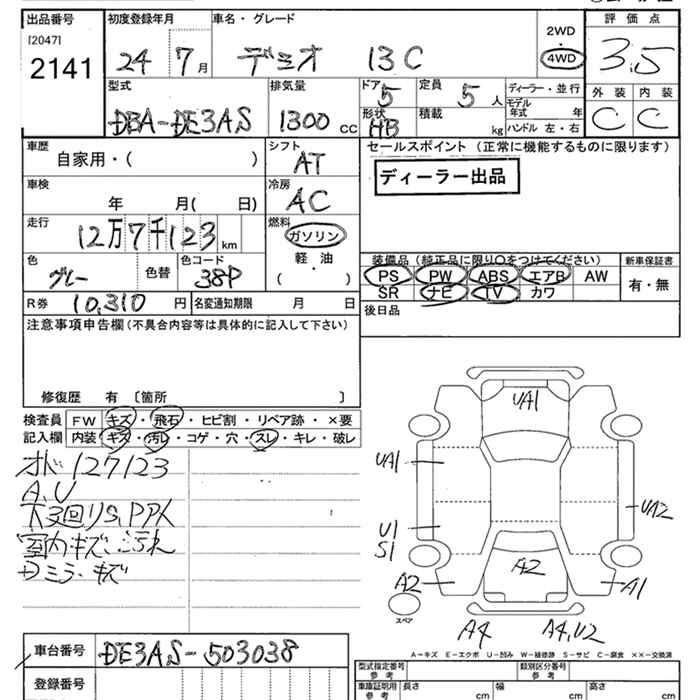 出品番号 初度登録年月 車名・グレード 評価点
[2047]
2141
24 7月 デミオ 13C 2WD 4WD 3.5
型式 排気量 ドア 定員 ディーラー・並行 外装 内装
DBA-DE3AS 1300cc 5 5人 モデル年式 年 C C
形状 HB 積載 kg ハンドル 左・右
車歴 シフト セールスポイント (正常に機能するものに限ります)
自家用・( ) AT
ディーラー出品
車検 冷房
年 月( 日) AC
走行 燃料
12万7千123km ガソリン
軽・油
( )
色 色替 色コード
グレー 38P
装備品(純正品に限り○をつけてください) 新車保証書
PS PW ABS エアB AW 有・無
SR ナビ TV カワ
R券 10,310円 名変通知期限 月 日 後日品
注意事項申告欄(不具合内容等は具体的に記入して下さい)
修復歴 有 〔箇所 〕
検査員 FW キズ・飛石・ヒビ割・リペア跡・×要
記入欄 内装 キズ・汚レ・コゲ・穴・スレ・キレ・破レ
オド127123
A,U
下回りS,PP人
室内キズ・汚れ
Dミラーキズ
UA1
UA1
UA2
U1
S1
A2
A2
A1
スペア
A4 A4,U2
A−キズ E−エクボ U−凹み W−補修跡 S−サビ C−腐食 ××−交換済
車台番号 DE3AS-503038
型式指定番号 参考 類別区分番号 参考
登録番号
車庫証明用 参考 長さ cm 幅 cm 高さ cm